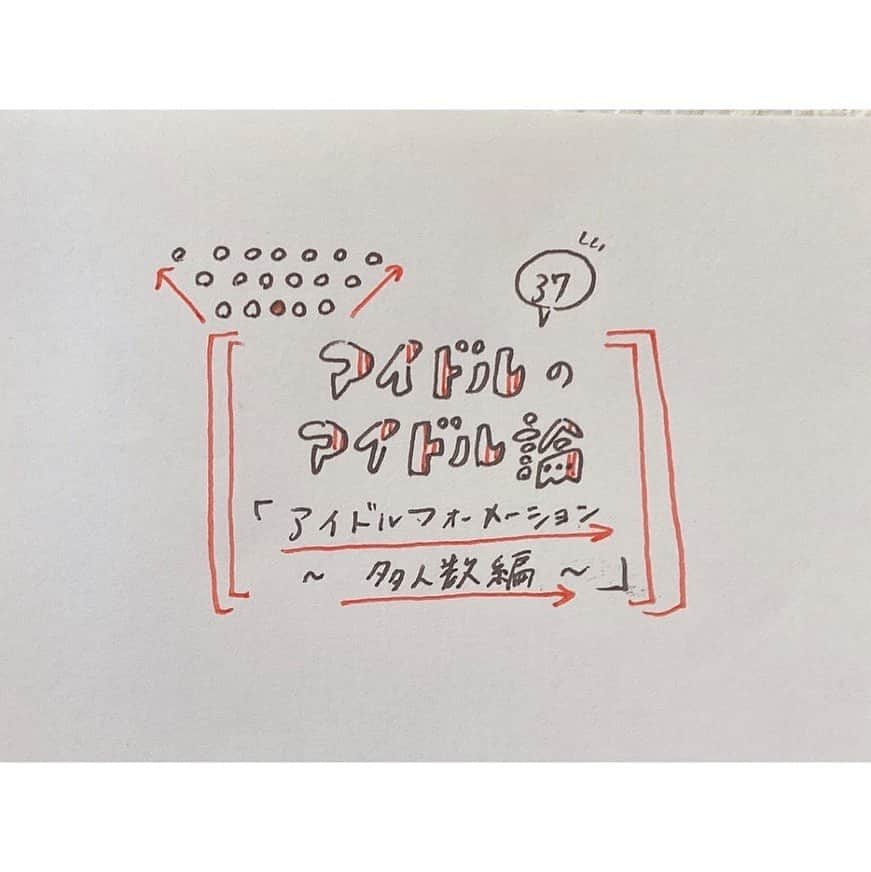 37
アイドルの
アイドル論
「アイドルフォーメーション
～ 多人数編 ～」